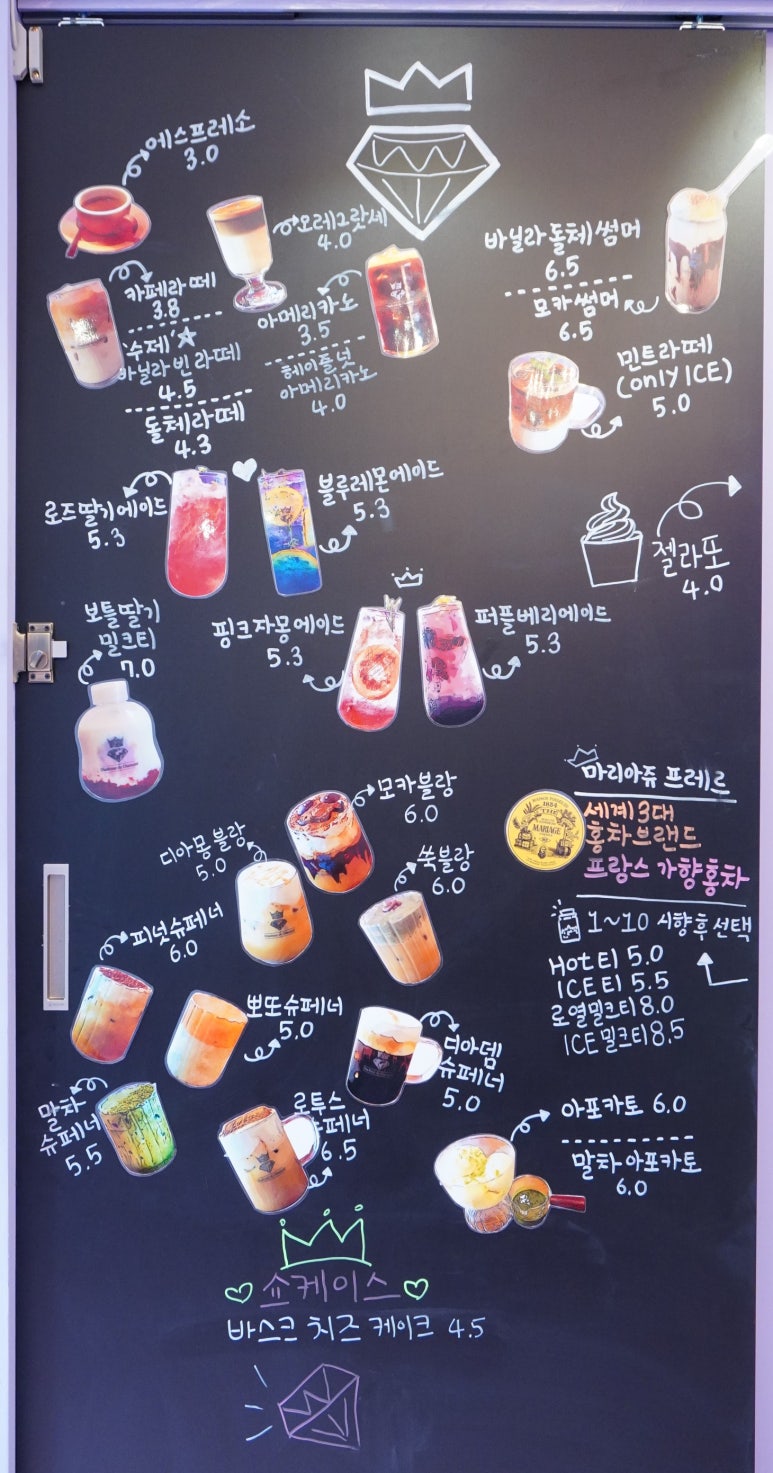 에스프레소
3.0
오레그랏세
4.0
카페라떼
3.8
'수제'
바닐라빈라떼
4.5
돌체라떼
4.3
아메리카노
3.5
헤이즐넛
아메리카노
4.0
바닐라돌체썸머
6.5
모카썸머
6.5
민트라떼
(only ICE)
5.0
로즈딸기에이드
5.3
블루레몬에이드
5.3
젤라또
4.0
보틀딸기
밀크티
7.0
핑크자몽에이드
5.3
퍼플베리에이드
5.3
모카블랑
6.0
디아몽블랑
5.0
쑥블랑
6.0
피넛슈페너
6.0
뽀또슈페너
5.0
디아뎀
슈페너
5.0
말차
슈페너
5.5
로투스
슈페너
6.5
마리아쥬 프레르
1854
MARIAGE
세계3대
홍차브랜드
프랑스 가향홍차
1~10 시향후선택
Hot티 5.0
ICE티 5.5
로열밀크티 8.0
ICE 밀크티 8.5
아포카토 6.0
말차아포카토
6.0
쇼케이스
바스크 치즈 케이크 4.5